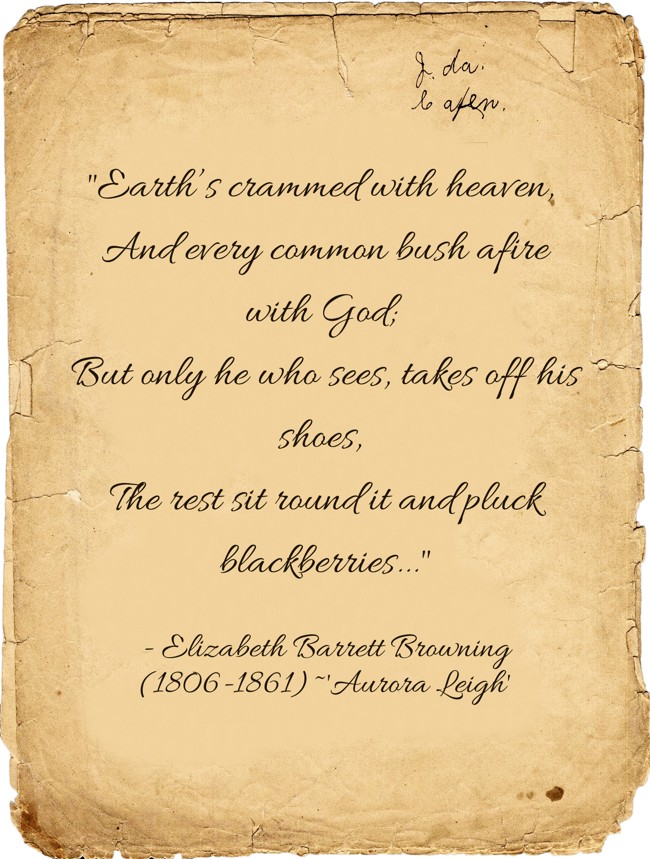 "Earth's crammed with heaven,
And every common bush afire
with God;
But only he who sees, takes off his
shoes,
The rest sit round it and pluck
blackberries..."
- Elizabeth Barrett Browning
(1806-1861) ~'Aurora Leigh'